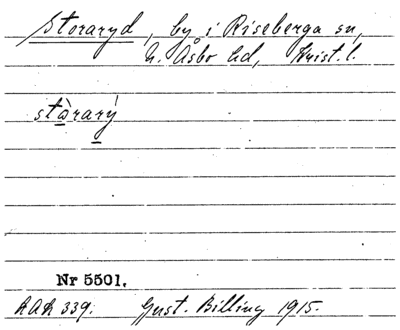 Storaryd, by i Riseberga sn,
N. Åsbo hd, Krist. l.
stàrarý
Nr 5501.
RAÄ 339. Gust. Billing 1915.